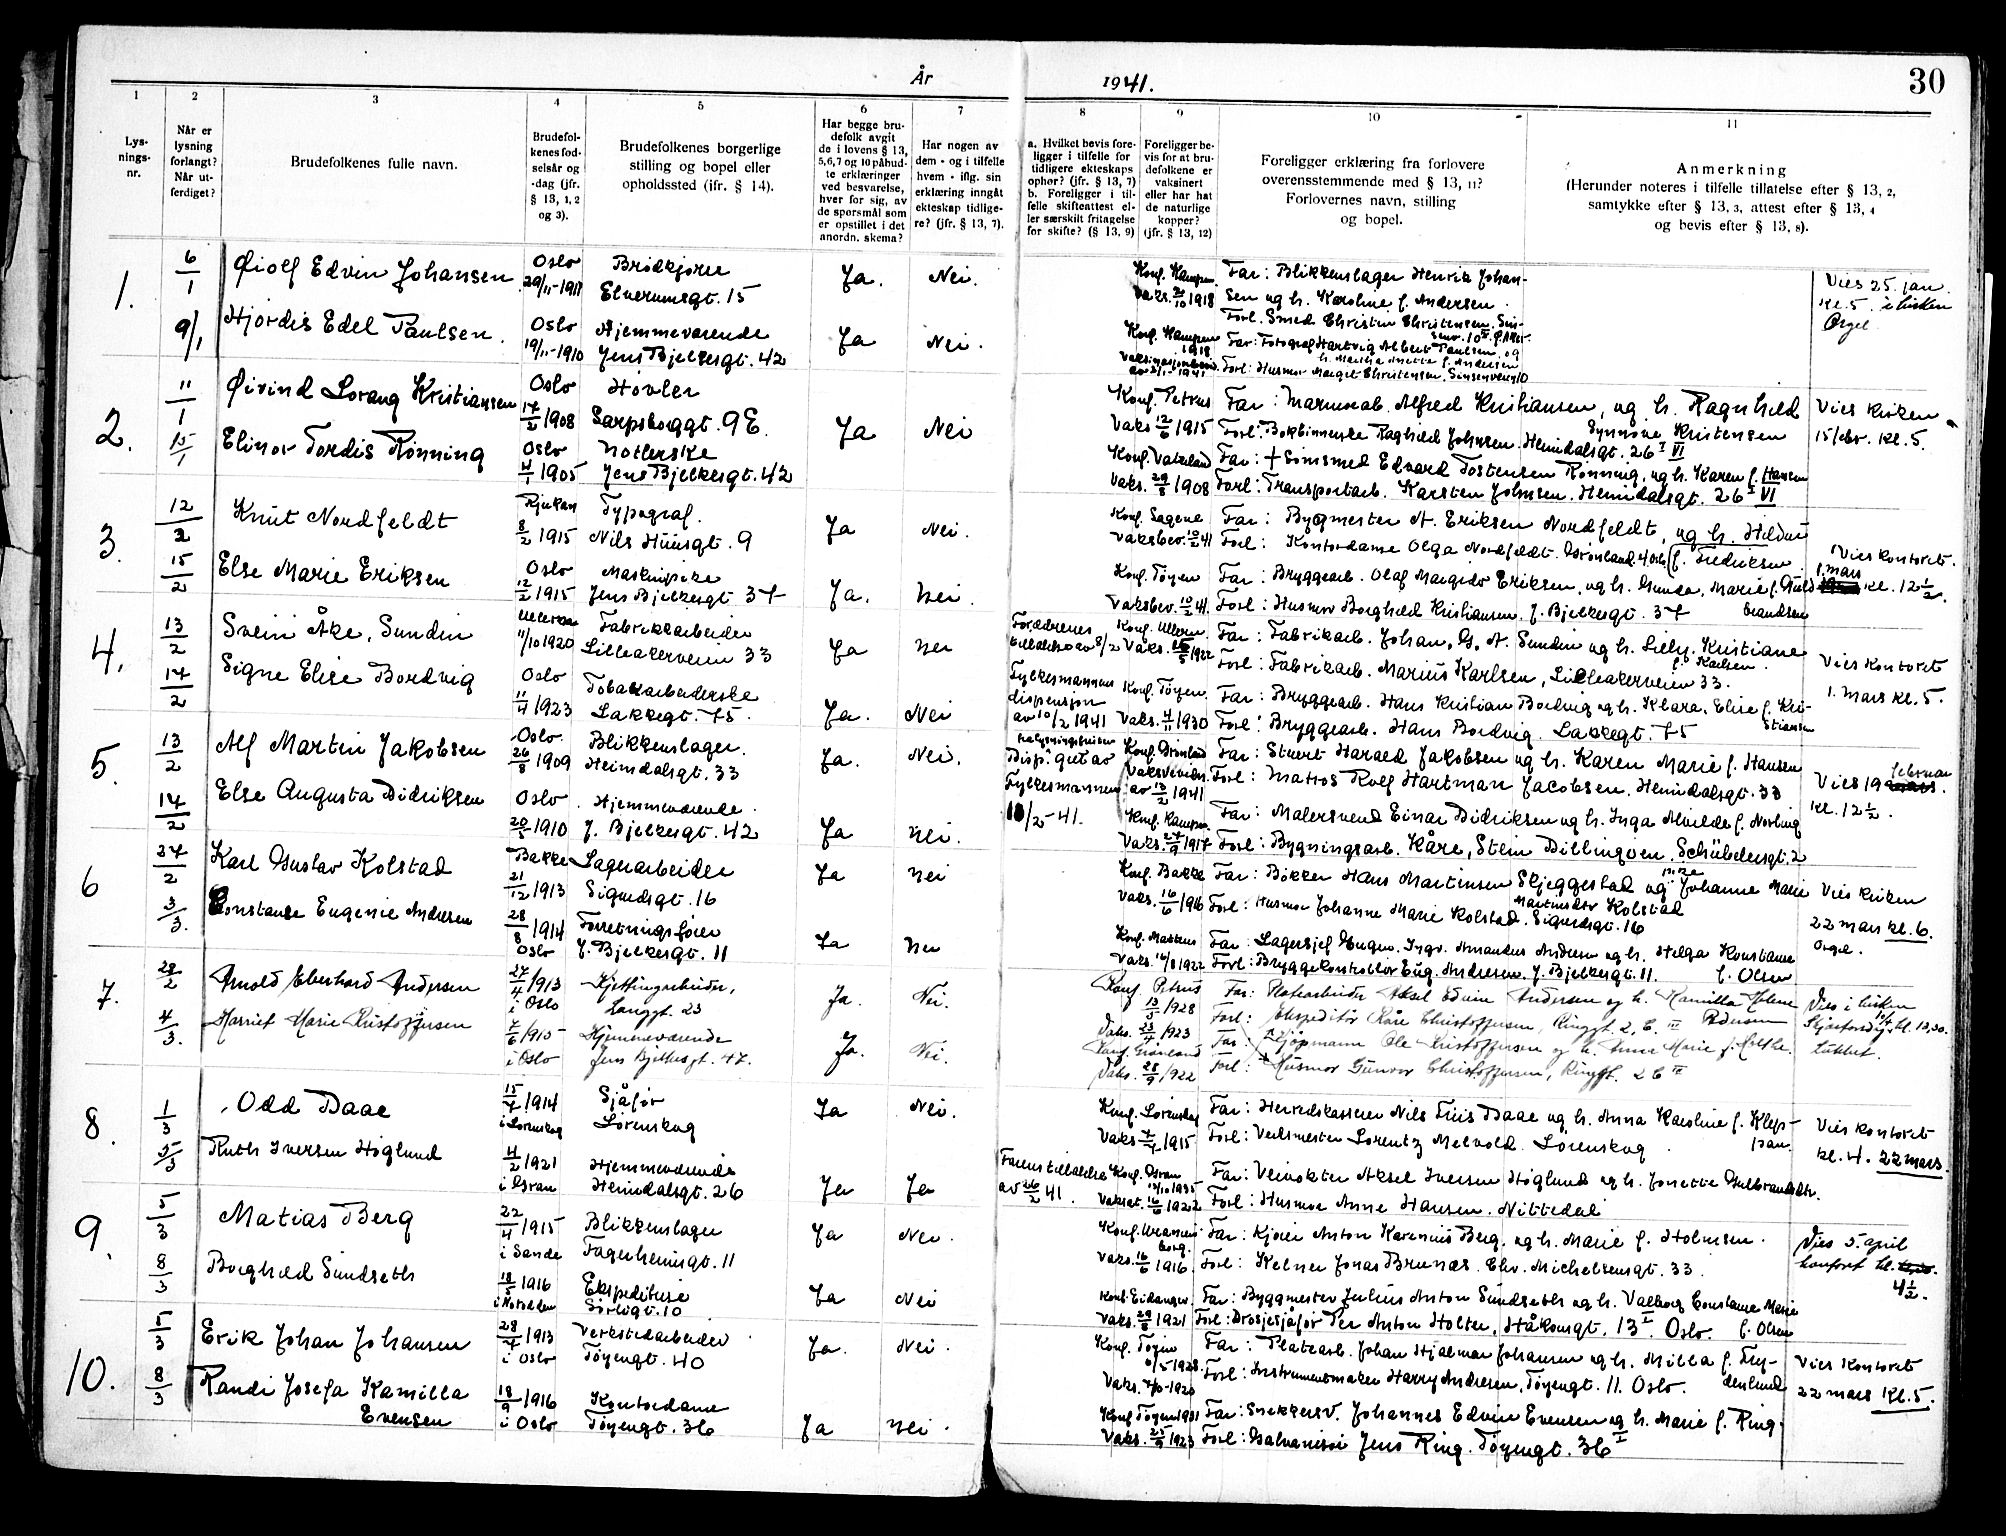 År 1941.
30
1 2 3 4 5 6 7 8 9 10 11
Lysningsnr.
Når er lysning forlangt? Når utferdiget?
Brudefolkenes fulle navn.
Brudefolkenes fødselsår og -dag (jfr. § 13, 1, 2 og 3).
Brudefolkenes borgerlige stilling og bopel eller opholdssted (jfr. § 14).
Har begge brudefolk avgit de i lovens § 13, 5,6,7 og 10 påbudte erklæringer ved besvarelse, hver for sig, av de spørsmål som er opstillet i det anordn. skema?
Har nogen av dem - og i tilfelle hvem - iflg. sin erklæring inngått ekteskap tidligere? (jfr. § 13, 7).
a. Hvilket bevis foreligger i tilfelle for tidligere ekteskaps ophør? (jfr. § 13, 7)
b. Foreligger i tilfelle skifteattest eller særskilt fritagelse for skifte? (§ 13, 9)
Foreligger bevis for at brudefolkene er vaksinert eller har hat de naturlige kopper? (jfr. § 13, 12)
Foreligger erklæring fra forlovere overensstemmende med § 13, 11? Forlovernes navn, stilling og bopel.
Anmerkning
(Herunder noteres i tilfelle tillatelse efter § 13, 2, samtykke efter § 13, 3, attest efter § 13, 4 og bevis efter § 13, 8).
1. 6/1 Øiolf Edvin Johansen Oslo 29/11-1911 Brødkjører Elverumsgt. 15 Ja. Nei.
Konf. Kampen Vaks. 1918
Far: Blikkenslager Henrik Johansen og h. Karoline f. Andersen.
Forl. Smed Christen Christensen
Vies 25. jan. kl. 5. i kirken Orgel
9/1 Hjørdis Edel Paulsen. Oslo 19/11-1910 Hjemmeværende Jens Bjelkesgt. 42 Ja Nei.
Konf. Kampen 1918
Far: Fotograf Hartvig Albert Paulsen og h. Martha Anette f. Andersen
Forl: Husmor Margit Christensen, Sinsenveien 10
2. 11/1 Øivind Lorang Kristiansen Oslo 17/2 1908 Høvler Sarpsborggt. 9 E. Ja Nei
Konf. Petrus Vaks 12/6 1915
Far: Marmorarb. Alfred Kristiansen, og h. Ragnhild Synnøve Kristensen
Forl: Bokbinnerske Raghild Johnsen. Heimdalsgt. 26 I VI
Vies kirken 15 febr. kl. 5.
15/1 Elinor Tordis Rønning Oslo 4/1 1905 Noterske Jens Bjelkesgt. 42
Vaks. 29/8 1908
Far: + Sinsmed Edvard Tostensen Rønning, og h. Karen f. Hansen
Forl: Transportarb. Karsten Johnsen. Heimdalsgt. 26 I VI
3. 12/2 Knut Nordfeldt Rjukan 8/2 1915 Typograf. Nils Huusgt. 9 Ja Nei.
Konf. Sagene Vaksbev. 10/2 41
Far: Bygmester A. Eriksen Nordfeldt, og h. Hildur f. Fredriksen.
Forl: Kontordame Olga Nordfeldt. Grønland. 4 Oslo
Vies kontoret. 1. mars kl. 12 1/2.
15/2 Else Marie Eriksen Oslo 12/2 1915 Maskinpike Jens Bjelkesgt 37 Ja. Nei.
Konf. Tøyen Vaksbev. 10/2 41.
Far: Bryggearb. Olaf Margido Eriksen, og h. Gunda, Marie f. Guldbrandsen
Forl: Husmor Borghild Kristiansen. J. Bjelkesgt. 37
4. 13/2 Svein Åke, Sundin Ullern 11/10 1920 Fabrikkarbeider Lilleakerveien 33 Ja Nei
Foreldrenes tilladelse av 8/2
Konf. Ullern. Vaks. 1922
Far: Fabrikarb. Johan, G. A. Sundin og h. Lilly, Kristiane f. Karlsen.
Forl: Fabrikarb. Marius Karlsen, Lilleakerveien 33.
Vies kontoret 1. mars kl. 5.
14/2 Signe Elise Bordvig Oslo 11/4 1923 Tobakarbeiderske Lakkegt. 75. Ja. Nei
Fylkesmannens dispensjon av 10/2 1941
Konf. Tøyen. Vaks. 4/11 1930
Far: Bryggearb. Hans Kristian Bordvig og h. Klara, Elise f. Kristiansen
Forl: Bryggearb. Hans Bordvig. Lakkegt. 75
5. 13/2 Alf Martin Jakobsen Oslo. 26/8 1909 Blikkenslager. Heimdalsgt. 33 Ja. Nei.
Disp. gitt av Fylkesmannen 10/2-41.
Konf. Grønland av 13/2 1941
Far: Stuert Harald Jakobsen og h. Karen Marie f. Hansen
Forl: Matros Rolf Hartman Jacobsen. Heimdalsgt. 33
Vies 19 februar kl. 12 1/2.
14/2 Else Augusta Didriksen Oslo 1910 Hjemmeværende. J. Bjelkesgt. 42 Ja Nei.
Konf. Kampen. Vaks. 1917
Far: Malersvend Einar Didriksen og h. Inga Alvilde f. Norling
Forl: Bygningsarb. Kåre, Stein Dillingøen. Schübelersgt. 2
6 24/2 Karl Gustav Kolstad Bakke 21/12 1913 Lagerarbeider Sigurdsgt. 16 Ja Nei
Konf. Bakke Vaks. 16/6 1916
Far: Bøkker Hans Martinsen Skjeggestad og Johanne Marie Martinsdtr Kolstad
Forl: Husmor Johanne Marie Kolstad. Sigurdsgt. 16
Vies kirken 22 mars kl. 6. Orgel.
3/3. Constance Eugenie Andresen 28/8 1914 Oslo Forretningsfører J. Bjelkesgt. 11 Ja Nei
Konf. Markus Vaks. 1922
Far: Lagersjef Eugen. Ingv. Amandus Andresen og h. Helga Konstanse f. Olsen
Forl: Bryggekontrollør Eug. Andresen. J. Bjelkesgt. 11.
7. 28/2 Arnold Eberhard Andersen 27/4 1913 i Oslo Kjettingarbeider, Langgt. 23 Ja. Nei.
Konf. Petrus 13/5 1928 Vaks. 23/4 1923
Far: Platearbeider Aksel Edvin Andersen og h. Kamilla Helene Pedersen
Forl: Ekspeditør Kåre Christoffersen, Ringgt. 2, C. III
Vies i kirken kl. 12,30.
4/3. Harriet Marie Kristoffersen 7/6 1915 i Oslo Hjemmeværende Jens Bjelkesgt. 47. Ja. Nei.
Konf. Grønland Vaks. 28/9 1922
Far: Kjøpmann Ole Kristoffersen og h. Anna Marie f. Holthe.
Forl: Husmor Gunvor Christoffersen, Ringgt. 2 C III
8. 1/3 Odd Daae 15/4 1914 i Lørenskog Sjåfør Lørenskog Ja Nei.
Konf. Lørenskog Vaks 1915
Far: Herredskasserer Nils Friis Daae og h. Anna Karoline f. Klep-
Forl: Verksmester Lorentz Melvold. Lørenskog.
Vies kontoret kl. 4. 22 mars.
5/3 Ruth Iversen Høglund 4/2 1921 i Gran Hjemmeværende Heimdalsgt. 26 Ja Ja
Farens tilladelse av 26/2 41.
Konf. Gran 13/10 1935 Vaksat. 16/6 1922
Far: Veivokter Aksel Iversen Høglund og h. Jonette Gulbrandsdtr.
Forl: Husmor Anne Hansen. Nittedal
9. 5/3 Matias Berg 22/4 1915 i Sande Blikkenslager Fagerheimgt. 11 Ja Nei.
Konf. Uranienborg. Vaks. 16/6 1916
Far: Kjører Anton Karenius Berg. og h. Marie f. Holmsen.
Forl: Kelner Jonas Brunæs. Chr. Michelsensgt. 33.
Vies 5. april kontoret kl. 4 1/2.
8/3 Borghild Sundseth 18/5 1916 i Notodden Ekspeditrise Sörligt. 10 Ja Nei
Konf. Eidanger Vaks. 29/8 1921
Far: Byggmester Julius Anton Sundseth og h. Valborg Constance Marie f. Olsen
Forl: Drosjesjåfør Per Anton Holter, Håkonsgt. 13 I. Oslo.
10. 5/3 Erik Johan Johansen 28/7 1913 i Oslo Verkstedarbeider Tøyengt. 40 Ja. Nei.
Konf. Tøyen 1928 Vaks. 1920
Far: Platearb. Johan Hjalmar Johansen og h. Milla f. Frydenlund
Forl: Instrumentmaker Harry Andresen, Tøyengt. 11. Oslo.
Vies Kontoret 22 mars kl. 5.
8/3 Randi Josefa Kamilla Evensen 18/9 1916 i Oslo Kontordame Tøyengt. 36 Ja Nei.
Konf Tøyen 1931 Vaks. 25/9 1923
Far: Snekkersv. Johannes Edvin Evensen og h. Marie f. Ring.
Forl: Galvanisør Jens Ring. Tøyengt. 36 I